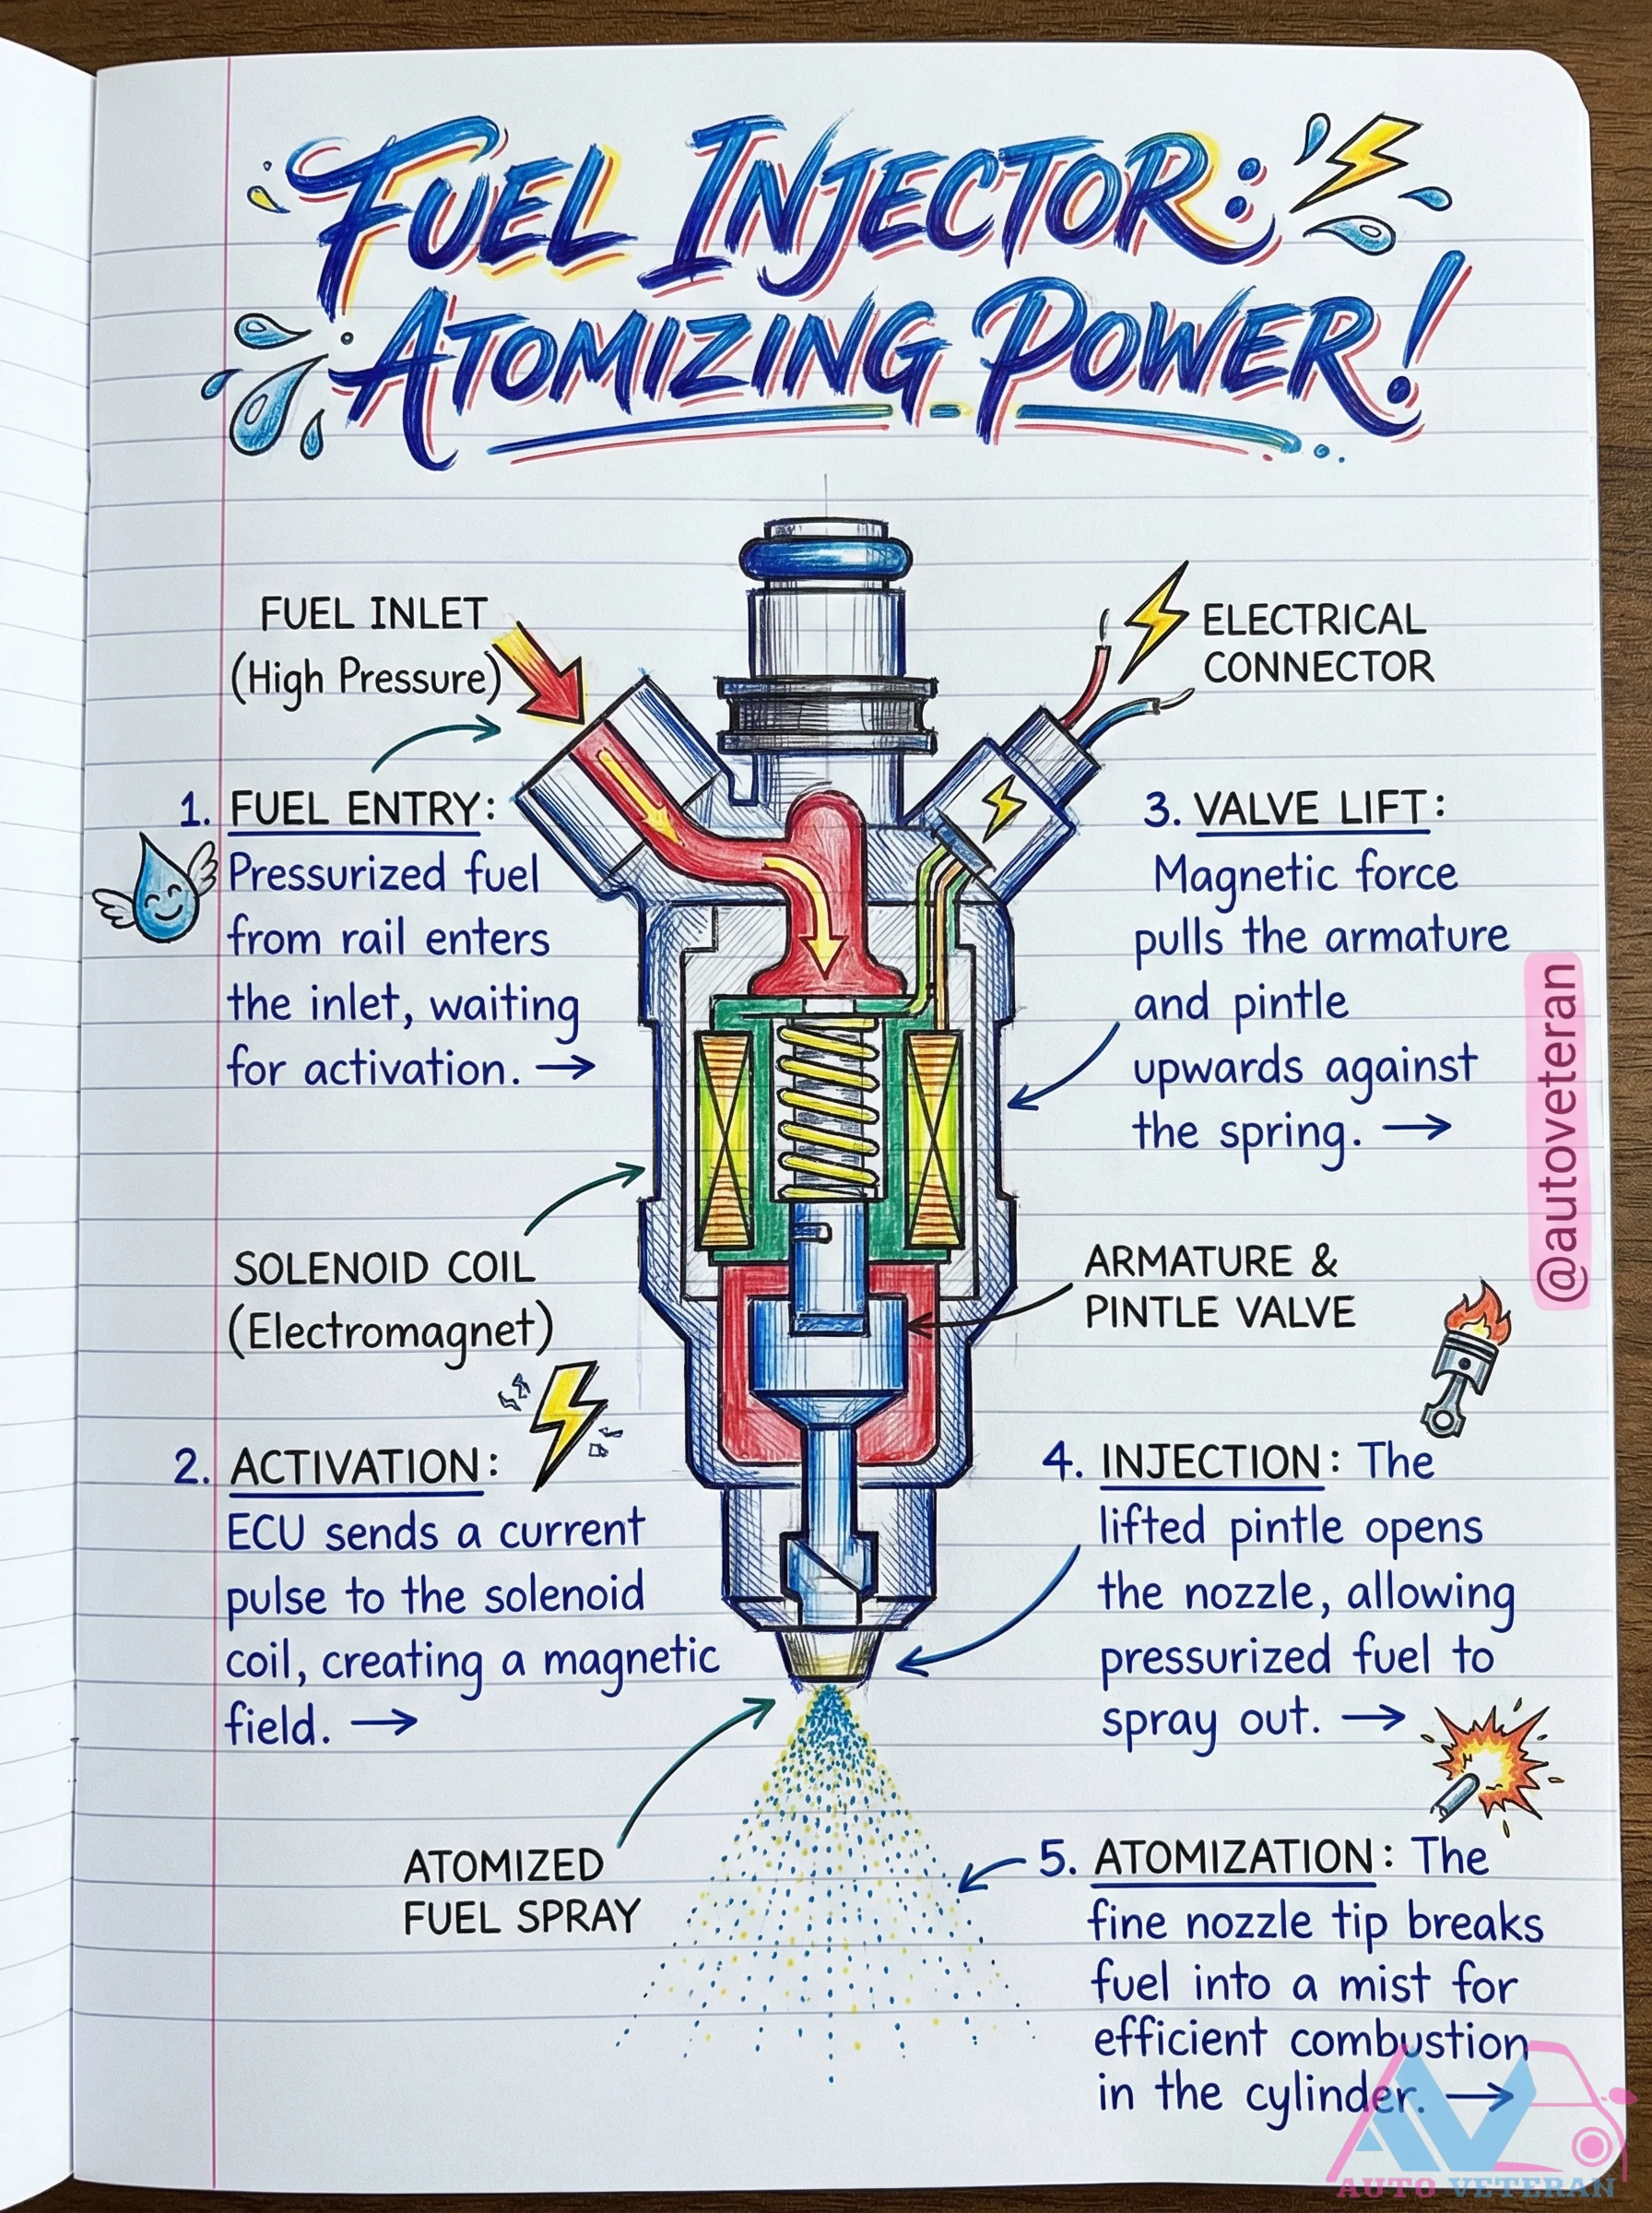 FUEL INJECTOR:
ATOMIZING POWER!
FUEL INLET
(High Pressure)
ELECTRICAL
CONNECTOR
1. FUEL ENTRY:
Pressurized fuel
from rail enters
the inlet, waiting
for activation. →
SOLENOID COIL
(Electromagnet)
2. ACTIVATION:
ECU sends a current
pulse to the solenoid
coil, creating a magnetic
field. →
3. VALVE LIFT:
Magnetic force
pulls the armature
and pintle
upwards against
the spring. →
ARMATURE &
PINTLE VALVE
4. INJECTION: The
lifted pintle opens
the nozzle, allowing
pressurized fuel to
spray out. →
ATOMIZED
FUEL SPRAY
5. ATOMIZATION: The
fine nozzle tip breaks
fuel into a mist for
efficient combustion
in the cylinder. →
@autoveteran
AV
AUTO VETERAN